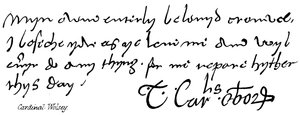 Myn owne entirly belovyd cromwel,
I beseche yow as ye love me and wyl
evyr do any thyng for me repare hyther
thys day
T. Carlis Ebor
Cardinal Wolsey